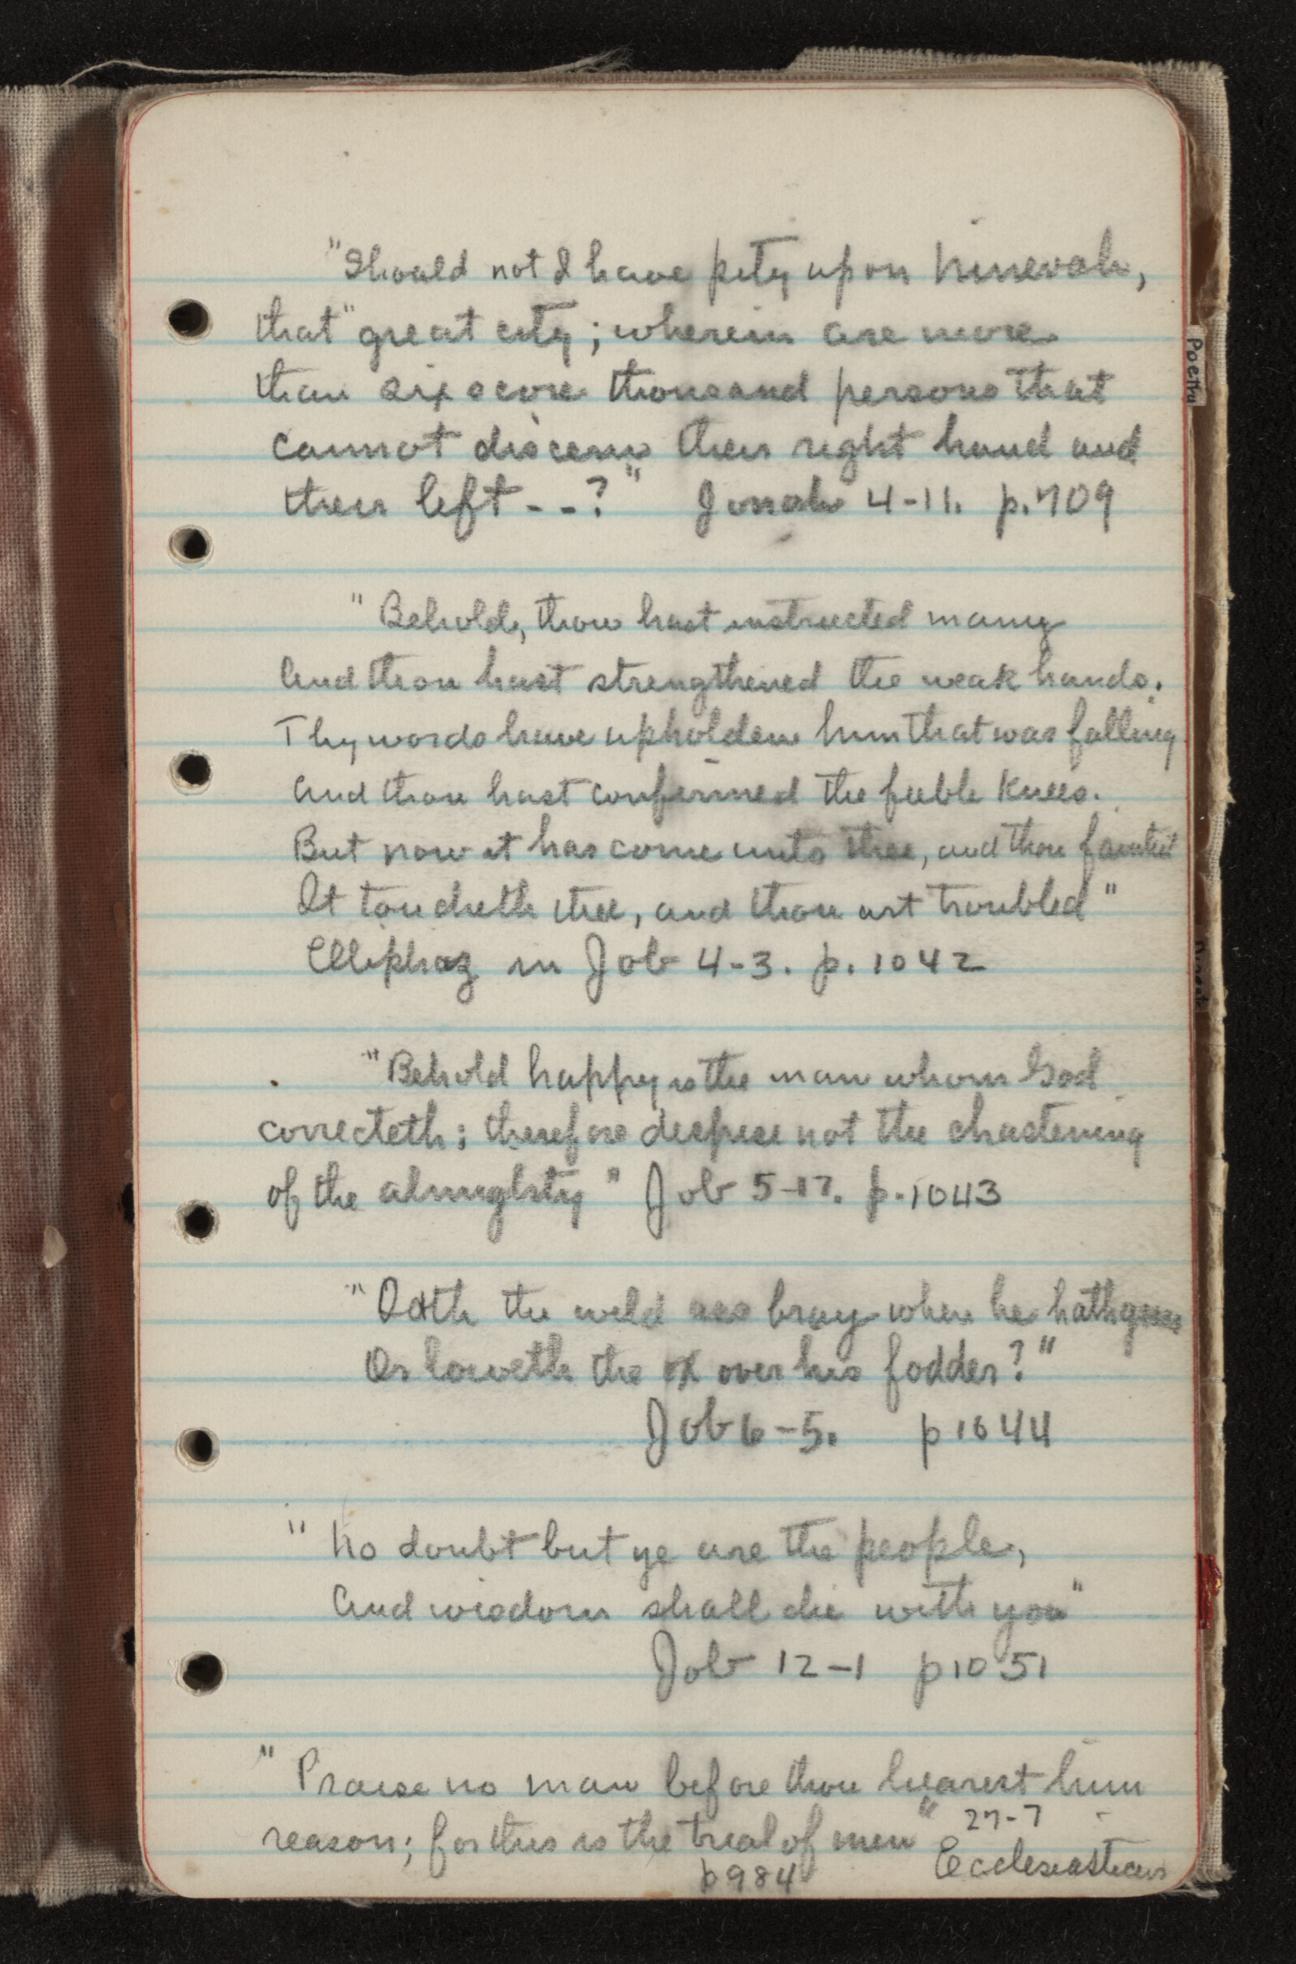 "Should not I have pity upon Ninevah,
that" great city; wherein are more
than six score thousand persons that
cannot discern their right hand and
their left - - ?" Jonah 4-11. p.709
"Behold, thou hast instructed many
And thou hast strengthened the weak hands.
Thy words have upholden him that was falling
And thou hast confirmed the feeble knees.
But now it has come unto thee, and thou faintest
It toucheth thee, and thou art troubled"
Elliphaz in Job 4-3. p. 1042
"Behold happy is the man whom God
correcteth; therefore despise not the chastening
of the almighty" Job 5-17. p.1043
"Doth the wild ass bray when he hath grass
Or loweth the ox over his fodder?"
Job 6-5. p 1044
"No doubt but ye are the people,
And wisdom shall die with you"
Job 12-1 p 1051
"Praise no man before thou hearest him
reason; for this is the trial of men" 27-7
p984 Ecclesiasticus
Poetry